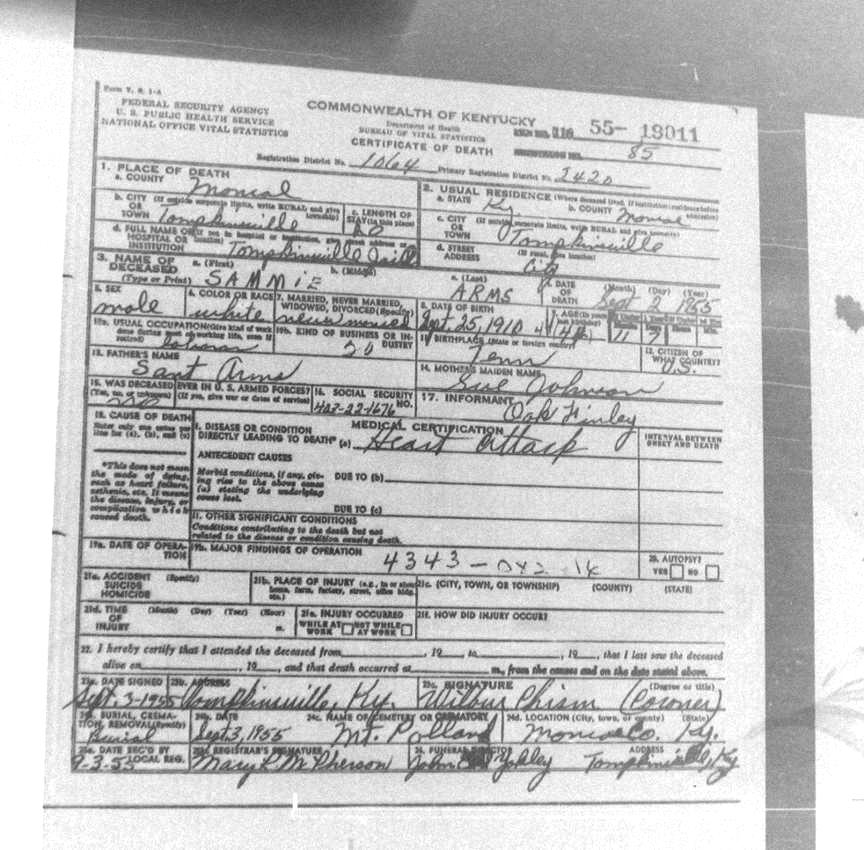 Form V. S. 1-A
FEDERAL SECURITY AGENCY
U. S. PUBLIC HEALTH SERVICE
NATIONAL OFFICE VITAL STATISTICS
COMMONWEALTH OF KENTUCKY
Department of Health
BUREAU OF VITAL STATISTICS
CERTIFICATE OF DEATH
116 55- 18011
REGISTRAR'S NO. 85
Registration District No. 1064 Primary Registration District No. 2420
1. PLACE OF DEATH
a. COUNTY Monroe
2. USUAL RESIDENCE (Where deceased lived, if institution: residence before admission)
a. STATE Ky. b. COUNTY Monroe
b. CITY OR TOWN (If outside corporate limits, write RURAL and give township) Tompkinsville
c. LENGTH OF STAY (in this place)
c. CITY OR TOWN (If outside corporate limits, write RURAL and give township) Tompkinsville
d. FULL NAME OF HOSPITAL OR INSTITUTION (If not in hospital or institution, give street address or location) Tompkinsville Jail
d. STREET ADDRESS (If rural, give location) City
3. NAME OF DECEASED (Type or Print) a. (First) SAMMIE b. (Middle) c. (Last) ARMS
4. DATE OF DEATH (Month) (Day) (Year) Sept 2 1955
5. SEX male
6. COLOR OR RACE white
7. MARRIED, NEVER MARRIED, WIDOWED, DIVORCED (Specify) never married
8. DATE OF BIRTH Sept. 25, 1910
9. AGE (In years last birthday) 44 11 7
10a. USUAL OCCUPATION (Give kind of work done during most of working life, even if retired)
10b. KIND OF BUSINESS OR INDUSTRY
11. BIRTHPLACE (State or foreign country) Tenn
12. CITIZEN OF WHAT COUNTRY? U.S.
13. FATHER'S NAME Sant Arms
14. MOTHER'S MAIDEN NAME Sue Johnson
15. WAS DECEASED EVER IN U. S. ARMED FORCES? (Yes, no, or unknown) (If yes, give war or dates of service)
16. SOCIAL SECURITY NO. 403-22-1676
17. INFORMANT Oak Finley
18. CAUSE OF DEATH
Enter only one cause per line for (a), (b), and (c)
MEDICAL CERTIFICATION
INTERVAL BETWEEN ONSET AND DEATH
I. DISEASE OR CONDITION
DIRECTLY LEADING TO DEATH* (a) Heart Attack
*This does not mean the mode of dying, such as heart failure, asthenia, etc. It means the disease, injury, or complication which caused death.
ANTECEDENT CAUSES
Morbid conditions, if any, giving rise to the above cause (a) stating the underlying cause last.
DUE TO (b)
DUE TO (c)
II. OTHER SIGNIFICANT CONDITIONS
Conditions contributing to the death but not related to the disease or condition causing death.
19a. DATE OF OPERATION
19b. MAJOR FINDINGS OF OPERATION
4343-
20. AUTOPSY?
YES NO
21a. ACCIDENT SUICIDE HOMICIDE (Specify)
21b. PLACE OF INJURY (e.g., in or about home, farm, factory, street, office bldg. etc.)
21c. (CITY, TOWN, OR TOWNSHIP) (COUNTY) (STATE)
21d. TIME OF INJURY (Month) (Day) (Year) (Hour) m.
21e. INJURY OCCURRED
WHILE AT WORK NOT WHILE AT WORK
21f. HOW DID INJURY OCCUR?
22. I hereby certify that I attended the deceased from , 19 to , 19 , that I last saw the deceased
alive on , 19 , and that death occurred at m., from the causes and on the date stated above.
23a. DATE SIGNED Sept. 3-1955
23b. ADDRESS Tompkinsville, Ky.
23c. SIGNATURE (Degree or title) Wilbur Chism (Coroner)
24a. BURIAL, CREMATION, REMOVAL (Specify) Burial
24b. DATE Sept 3, 1955
24c. NAME OF CEMETERY OR CREMATORY Mt. Polland
24d. LOCATION (City, town, or county) (State) Monroe Co. Ky.
25a. DATE REC'D BY LOCAL REG. 9-3-55
25b. REGISTRAR'S SIGNATURE Mary L. McPherson
26. FUNERAL DIRECTOR John Yokley
ADDRESS Tompkinsville, Ky